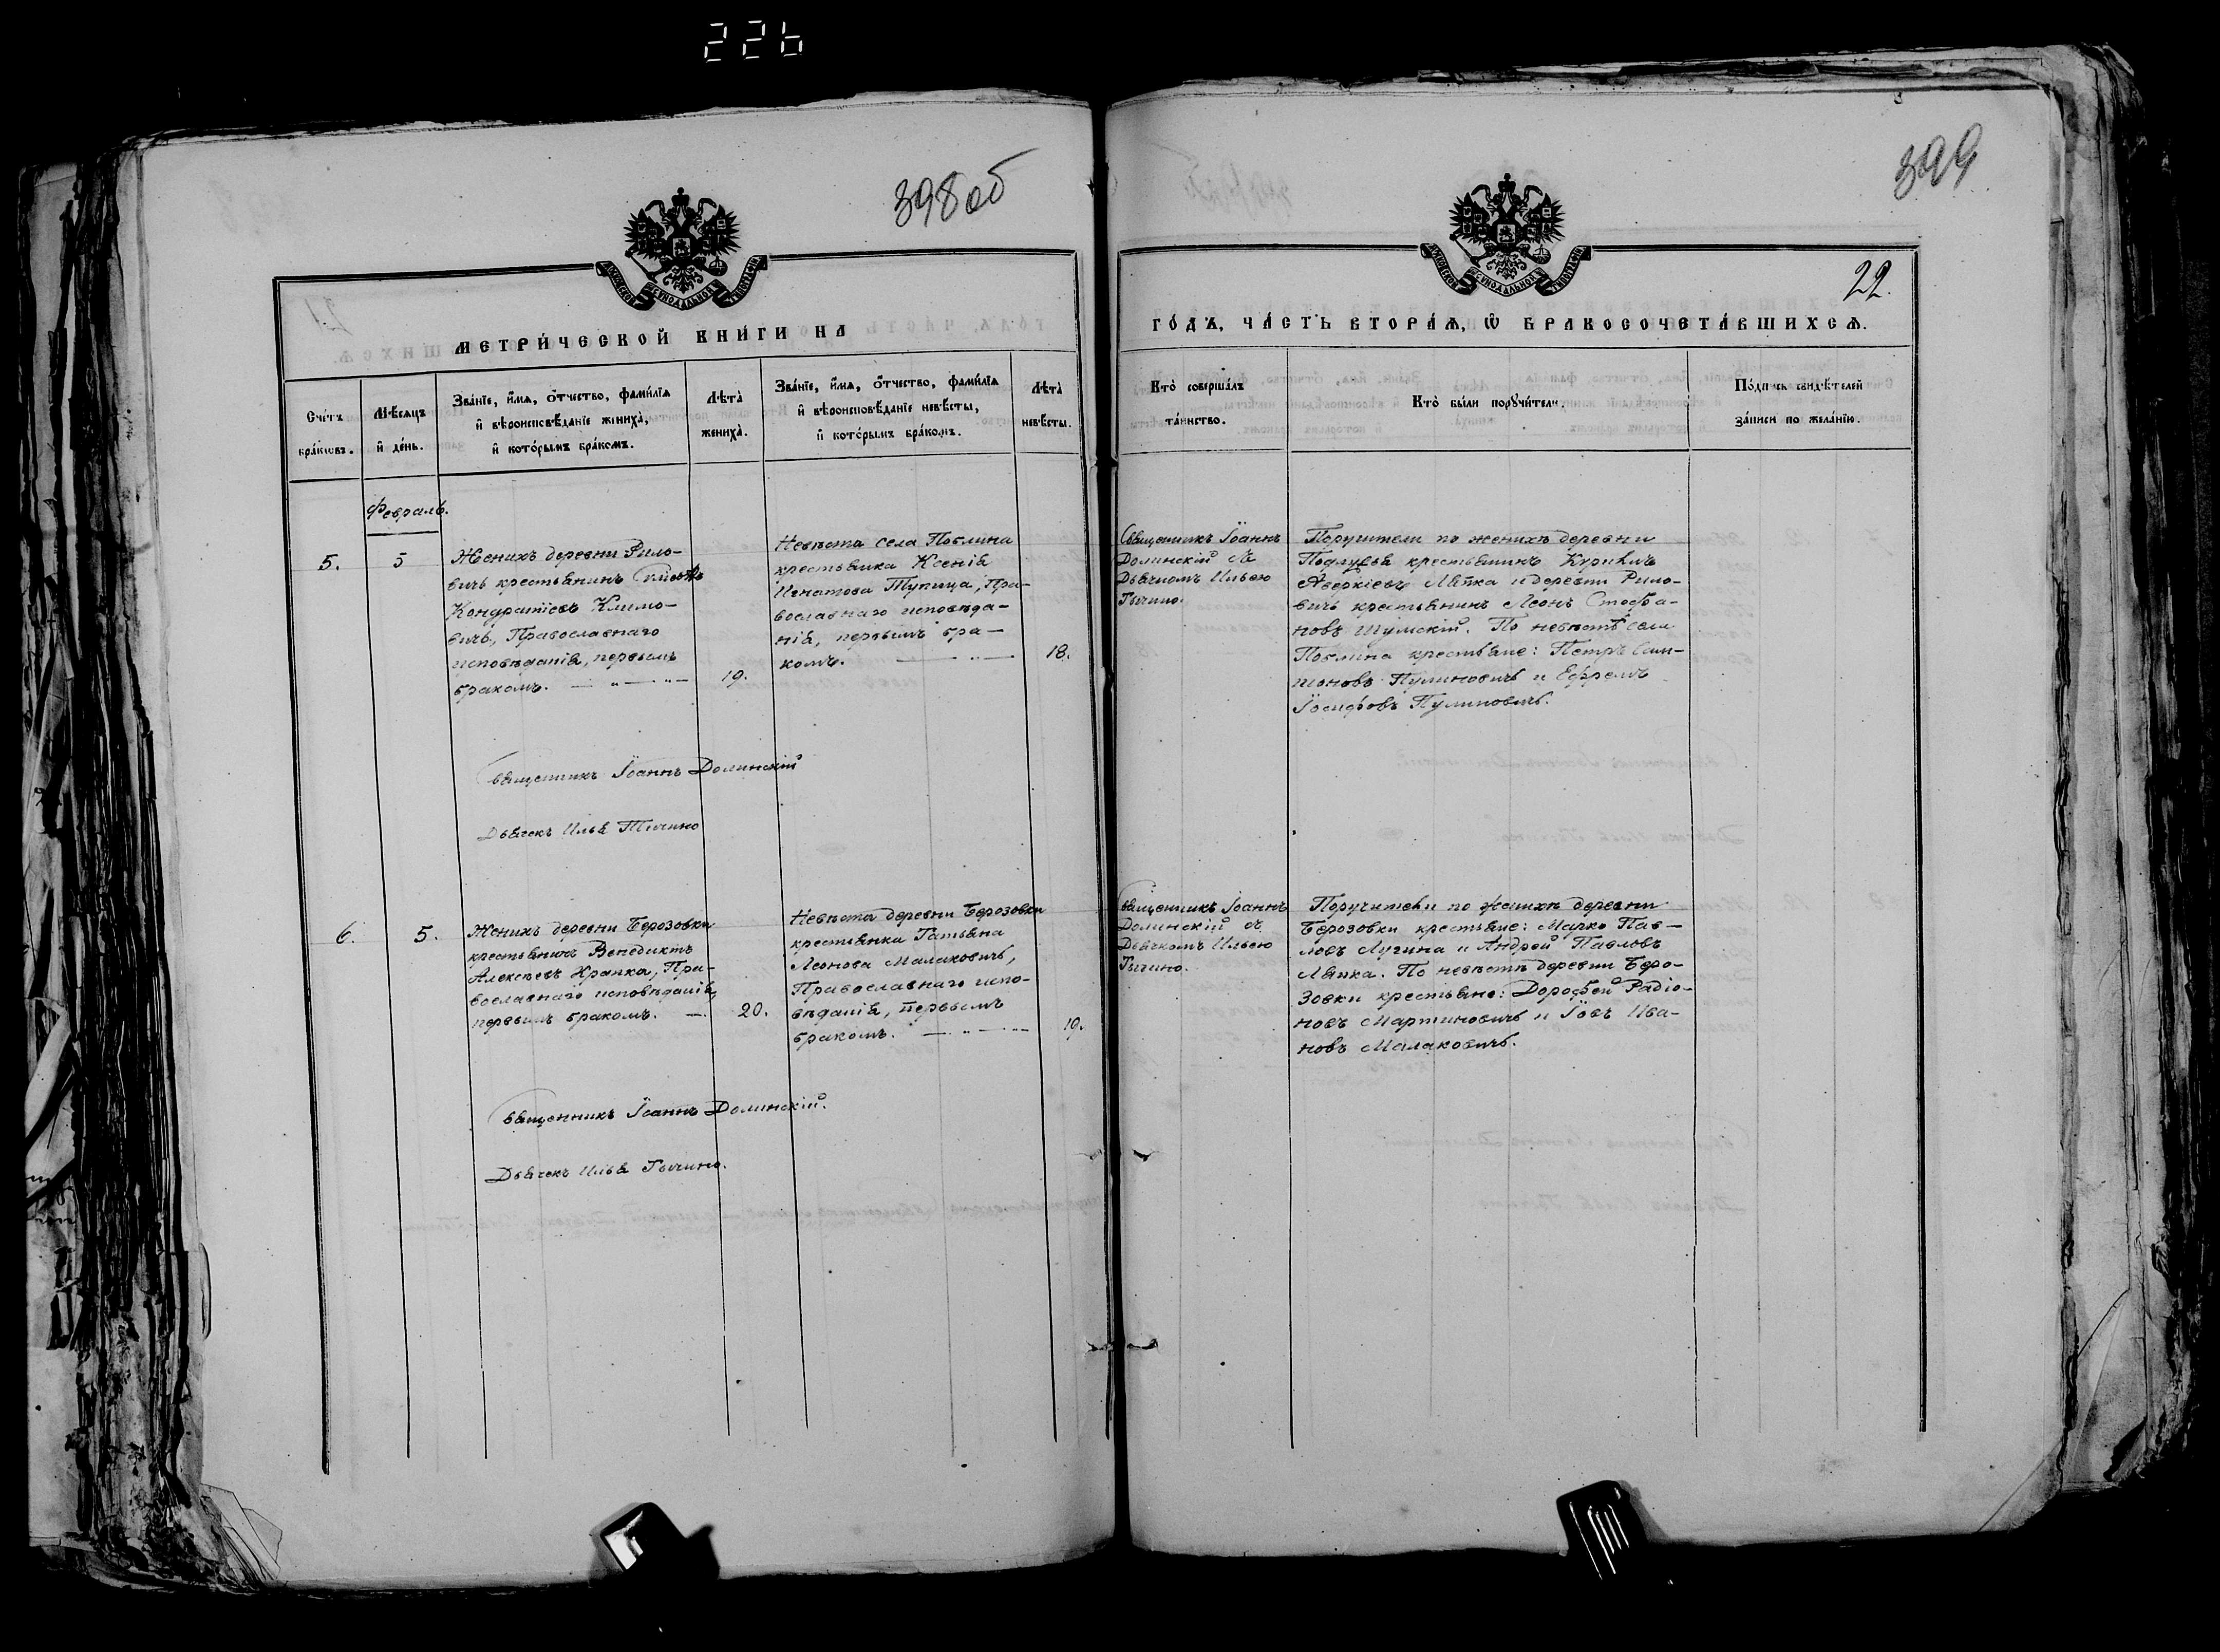 226
398 об
399
22.
МОСКОВСКОЙ СѴНОДАЛЬНОЙ ТИПОГРАФІИ
МОСКОВСКОЙ СѴНОДАЛЬНОЙ ТИПОГРАФІИ
МЕТРИ́ЧЕСКОЙ КНИ́ГИ НА
ГО́ДЪ, ЧА́СТЬ ВТОРА́Ѧ, Ѽ БРАКОСОЧЕТА́ВШИХСѦ.
Сче́тъ
бра́кѡвъ.
Мѣ́сѧцъ
и҆ де́нь.
Зва́нїе, и҆́мѧ, ѻ҆́тчество, фами́лїѧ
и҆ вѣроисповѣ́данїе жениха̀,
и҆ кото́рымъ бра́комъ.
Лѣ́та̀
жениха̀.
Зва́нїе, и҆́мѧ, ѻ҆́тчество, фами́лїѧ
и҆ вѣроисповѣ́данїе невѣ́сты,
и҆ кото́рымъ бра́комъ.
Лѣ́та̀
невѣ́сты.
Кто̀ соверша́лъ
та́инство.
Кто̀ бы́ли порꙋчи́тели.
По́дпись свидѣ́телей
за́писи по жела́нїю.
Февраль.
5.
5
Женихъ деревни Рило-
вичь крестьянинъ
Кондратіевъ Климо-
вичь, Православнаго
исповѣданія, первымъ
бракомъ. — „ — „ —
19.
Невѣста села Поблина
крестьянка Ксенія
Игнатова Тупица, Пра-
вославнаго исповѣда-
нія, первымъ бра-
комъ. — „ —
18.
Священникъ Іоаннъ
Долинскій съ
Дьячкомъ Ильею
Тычино.
Поручители по женихѣ деревни
крестьянинъ Курилъ
Аверкіевъ Ляпка и деревни Рило-
вичь крестьянинъ Леонъ Стефа-
новъ Шумскій. По невѣстѣ села
Поблина крестьяне: Петръ Сам-
соновъ Пулиновичь и Ефремъ
Іосифовъ Пулиновичь.
Священникъ Іоаннъ Долинскій
Дьячекъ Илья Тычино
6.
5.
Женихъ деревни Березовки
крестьянинъ Венедиктъ
Алексѣевъ Храпка, Пра-
вославнаго исповѣданія,
первымъ бракомъ. —
20.
Невѣста деревни Березовки
крестьянка Татьяна
Леонова Малаковичь,
Православнаго испо-
вѣданія, первымъ
бракомъ. — „ — „ —
19.
Священникъ Іоаннъ
Долинскій съ
Дьячкомъ Ильею
Тычино.
Поручители по женихѣ деревни
Березовки крестьяне: Марко Пав-
ловъ Лучина и Андрей Павловъ
Ляпка. По невѣстѣ деревни Бере-
зовки крестьяне: Дорофей Радіо-
новъ Мартиновичь и Іовъ Ива-
новъ Малаковичь.
Священникъ Іоаннъ Долинскій.
Дьячекъ Илья Тычино.